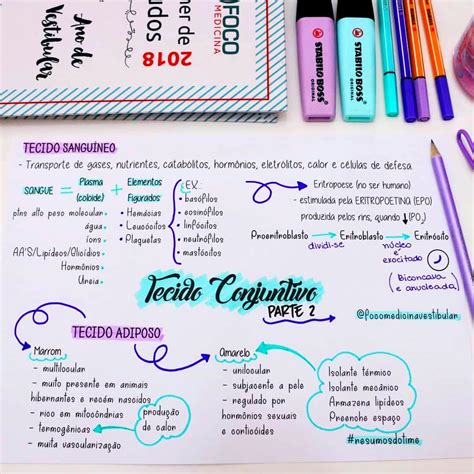 FOCO
MEDICINA
2018
Ano de
Vestibular
STABILO BOSS
ORIGINAL
STABILO BOSS
ORIGINAL
TECIDO SANGUÍNEO
- Transporte de gases, nutrientes, catabólitos, hormônios, eletrólitos, calor e células de defesa
SANGUE = Plasma (coloide) + Elementos Figurados
ptns alto peso molecular
água
íons
AA'S/Lipídeos/Glicídios
Hormônios
Ureia
- Hemácias
- Leucócitos
- Plaquetas
EX.:
• basófilos
• eosinófilos
• linfócitos
• neutrófilos
• mastócitos
Eritropoese (no ser humano)
- estimulada pela ERITROPOETINA (EPO)
produzida pelos rins, quando ↓(PO₂)
Proeritroblasto → Eritroblasto → Eritrócito
dividi-se
núcleo
é
exocitado
(Bicôncava
e anucleada)
Tecido Conjuntivo
PARTE 2
@focomedicinavestibular
TECIDO ADIPOSO
Marrom
- multilocular
- muito presente em animais
hibernantes e recém nascidos
- rico em mitocôndrias
- termogênicas
- muita vascularização
produção
de calor
Amarelo
- unilocular
- subjacente a pele
- regulado por
hormônios sexuais
e corticóides
Isolante térmico
Isolante mecânico
Armazena lipídeos
Preenche espaço
#resumosdotime